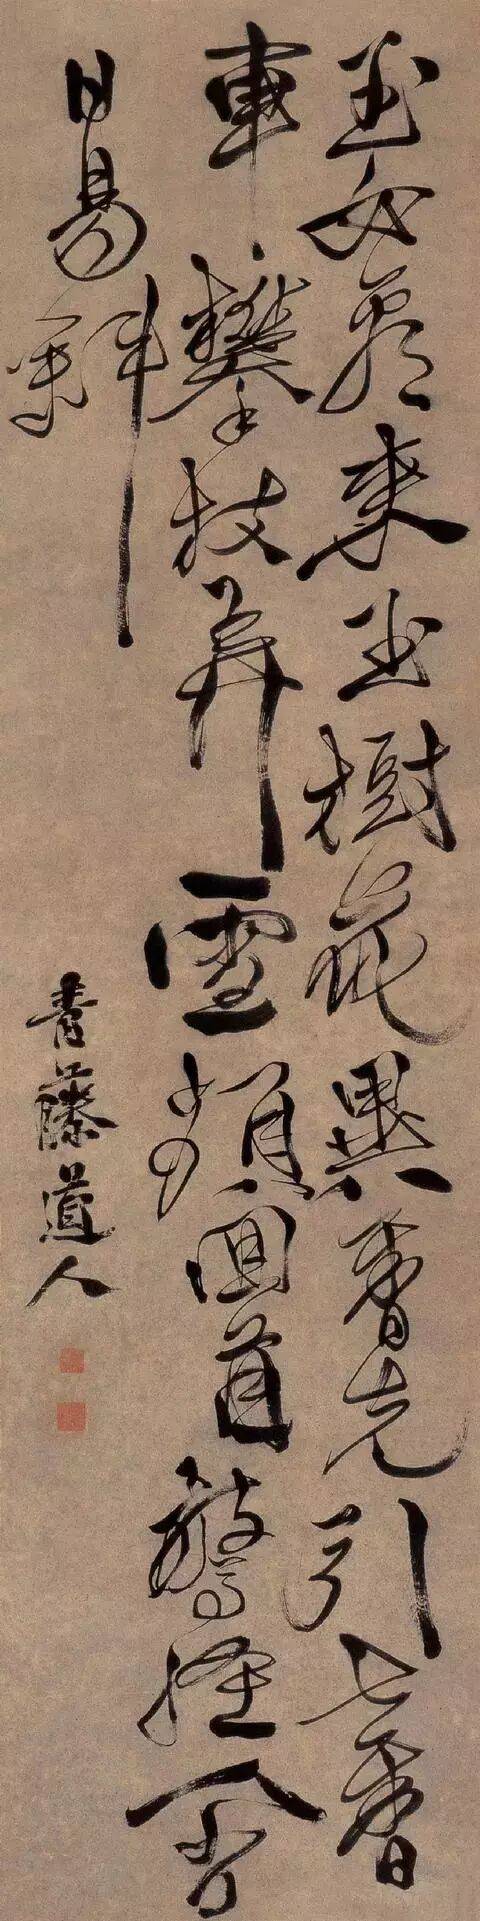 玉女來玉樹花異香先引七香
車攀枝弄雪頻回首驚怪人間
日易斜
青藤道人